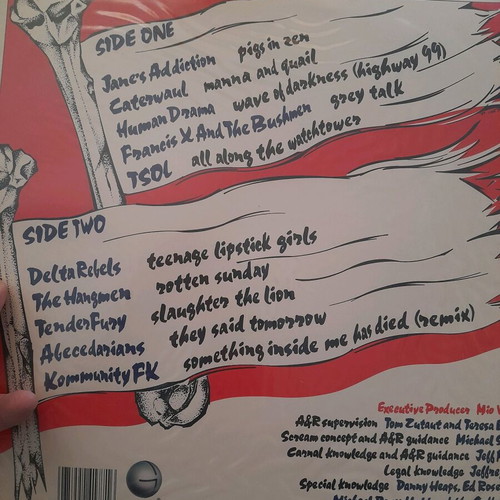 SIDE ONE
Jane's Addiction pigs in zen
Caterwaul manna and quail
Human Drama wave of darkness (highway 99)
Francis X And The Bushmen grey talk
TSOL all along the watchtower
SIDE TWO
Delta Rebels teenage lipstick girls
The Hangmen rotten sunday
Tender Fury slaughter the lion
Abecedarians they said tomorrow
Kommunity FK something inside me has died (remix)
Executive Producer Mio
A&R supervision Tom Zutaut and Teresa
Scream concept and A&R guidance Michael
Carnal knowledge and A&R guidance Jeff
Legal knowledge Jeffre
Special knowledge Danny Heaps, Ed Rose